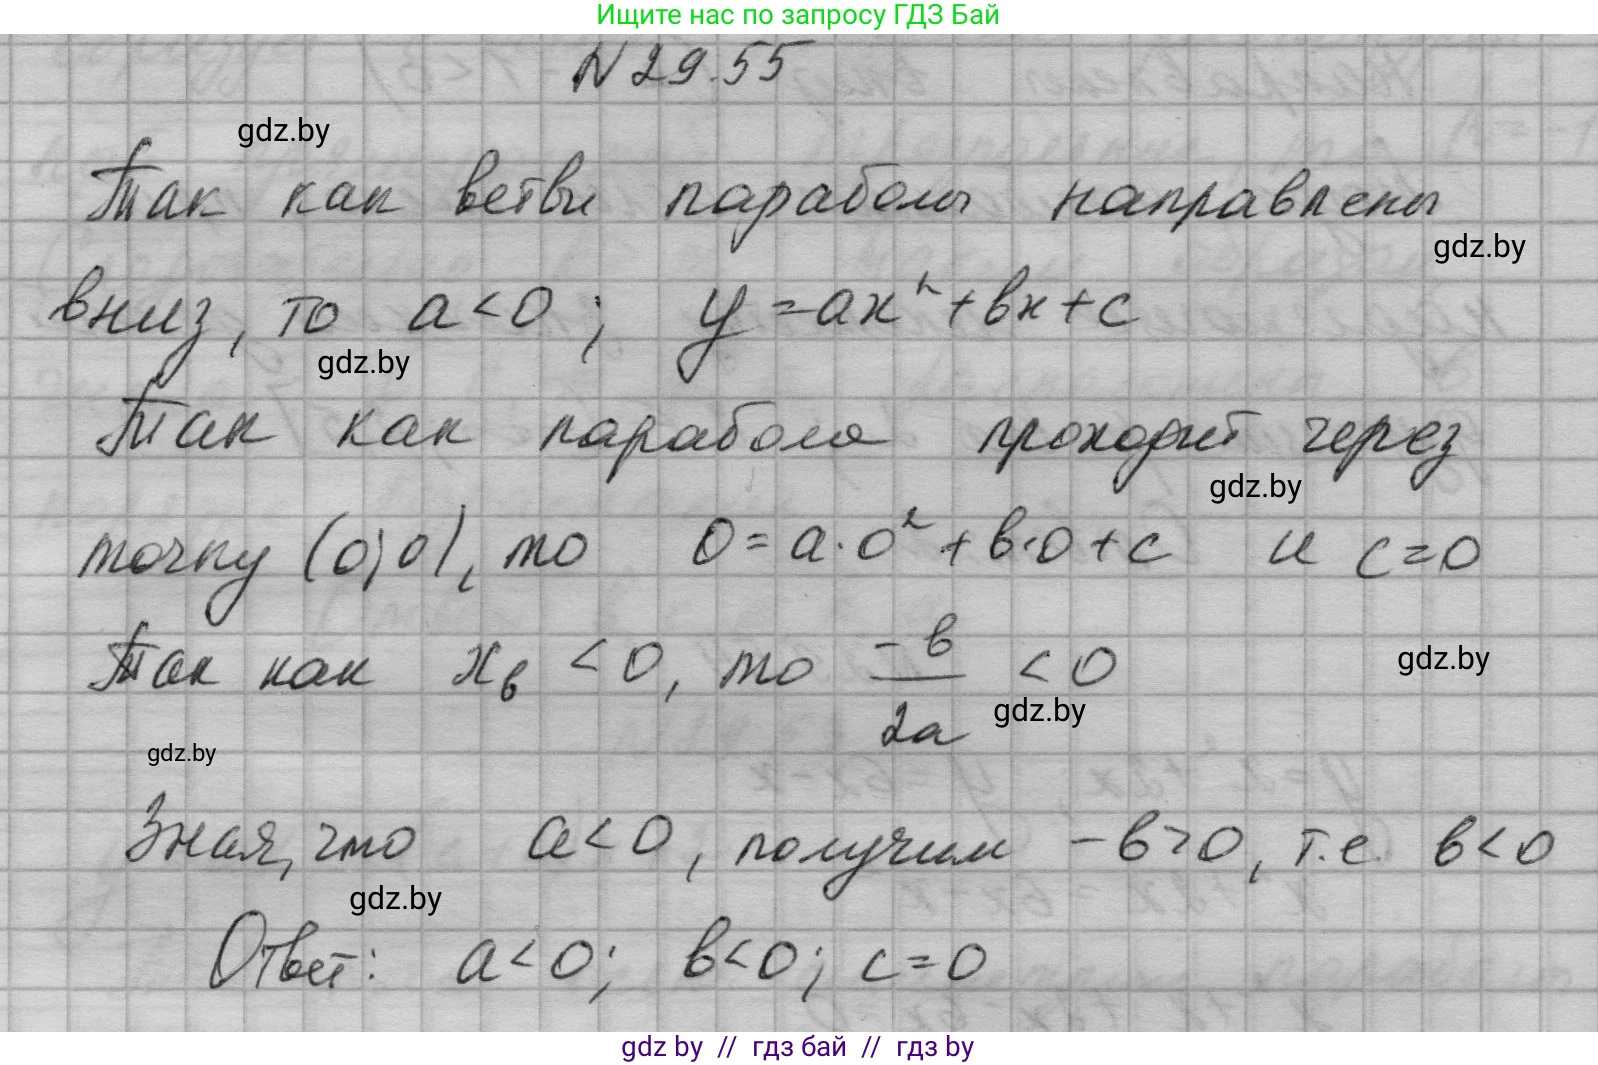 Ищите нас по запросу ГДЗ Бай
N 29.55
gdz.by
Так как ветви параболы направлены
gdz.by
вниз, то a<0; y=ax²+bx+c
gdz.by
Так как парабола проходит через
gdz.by
точку (0;0), то 0=a·0²+b·0+c и c=0
Так как xв <0, то -b/2a <0
gdz.by
gdz.by
gdz.by
Зная, что a<0, получим -b>0, т.е b<0
gdz.by
Ответ: a<0; b<0; c=0
gdz by // гдз бай // гдз by